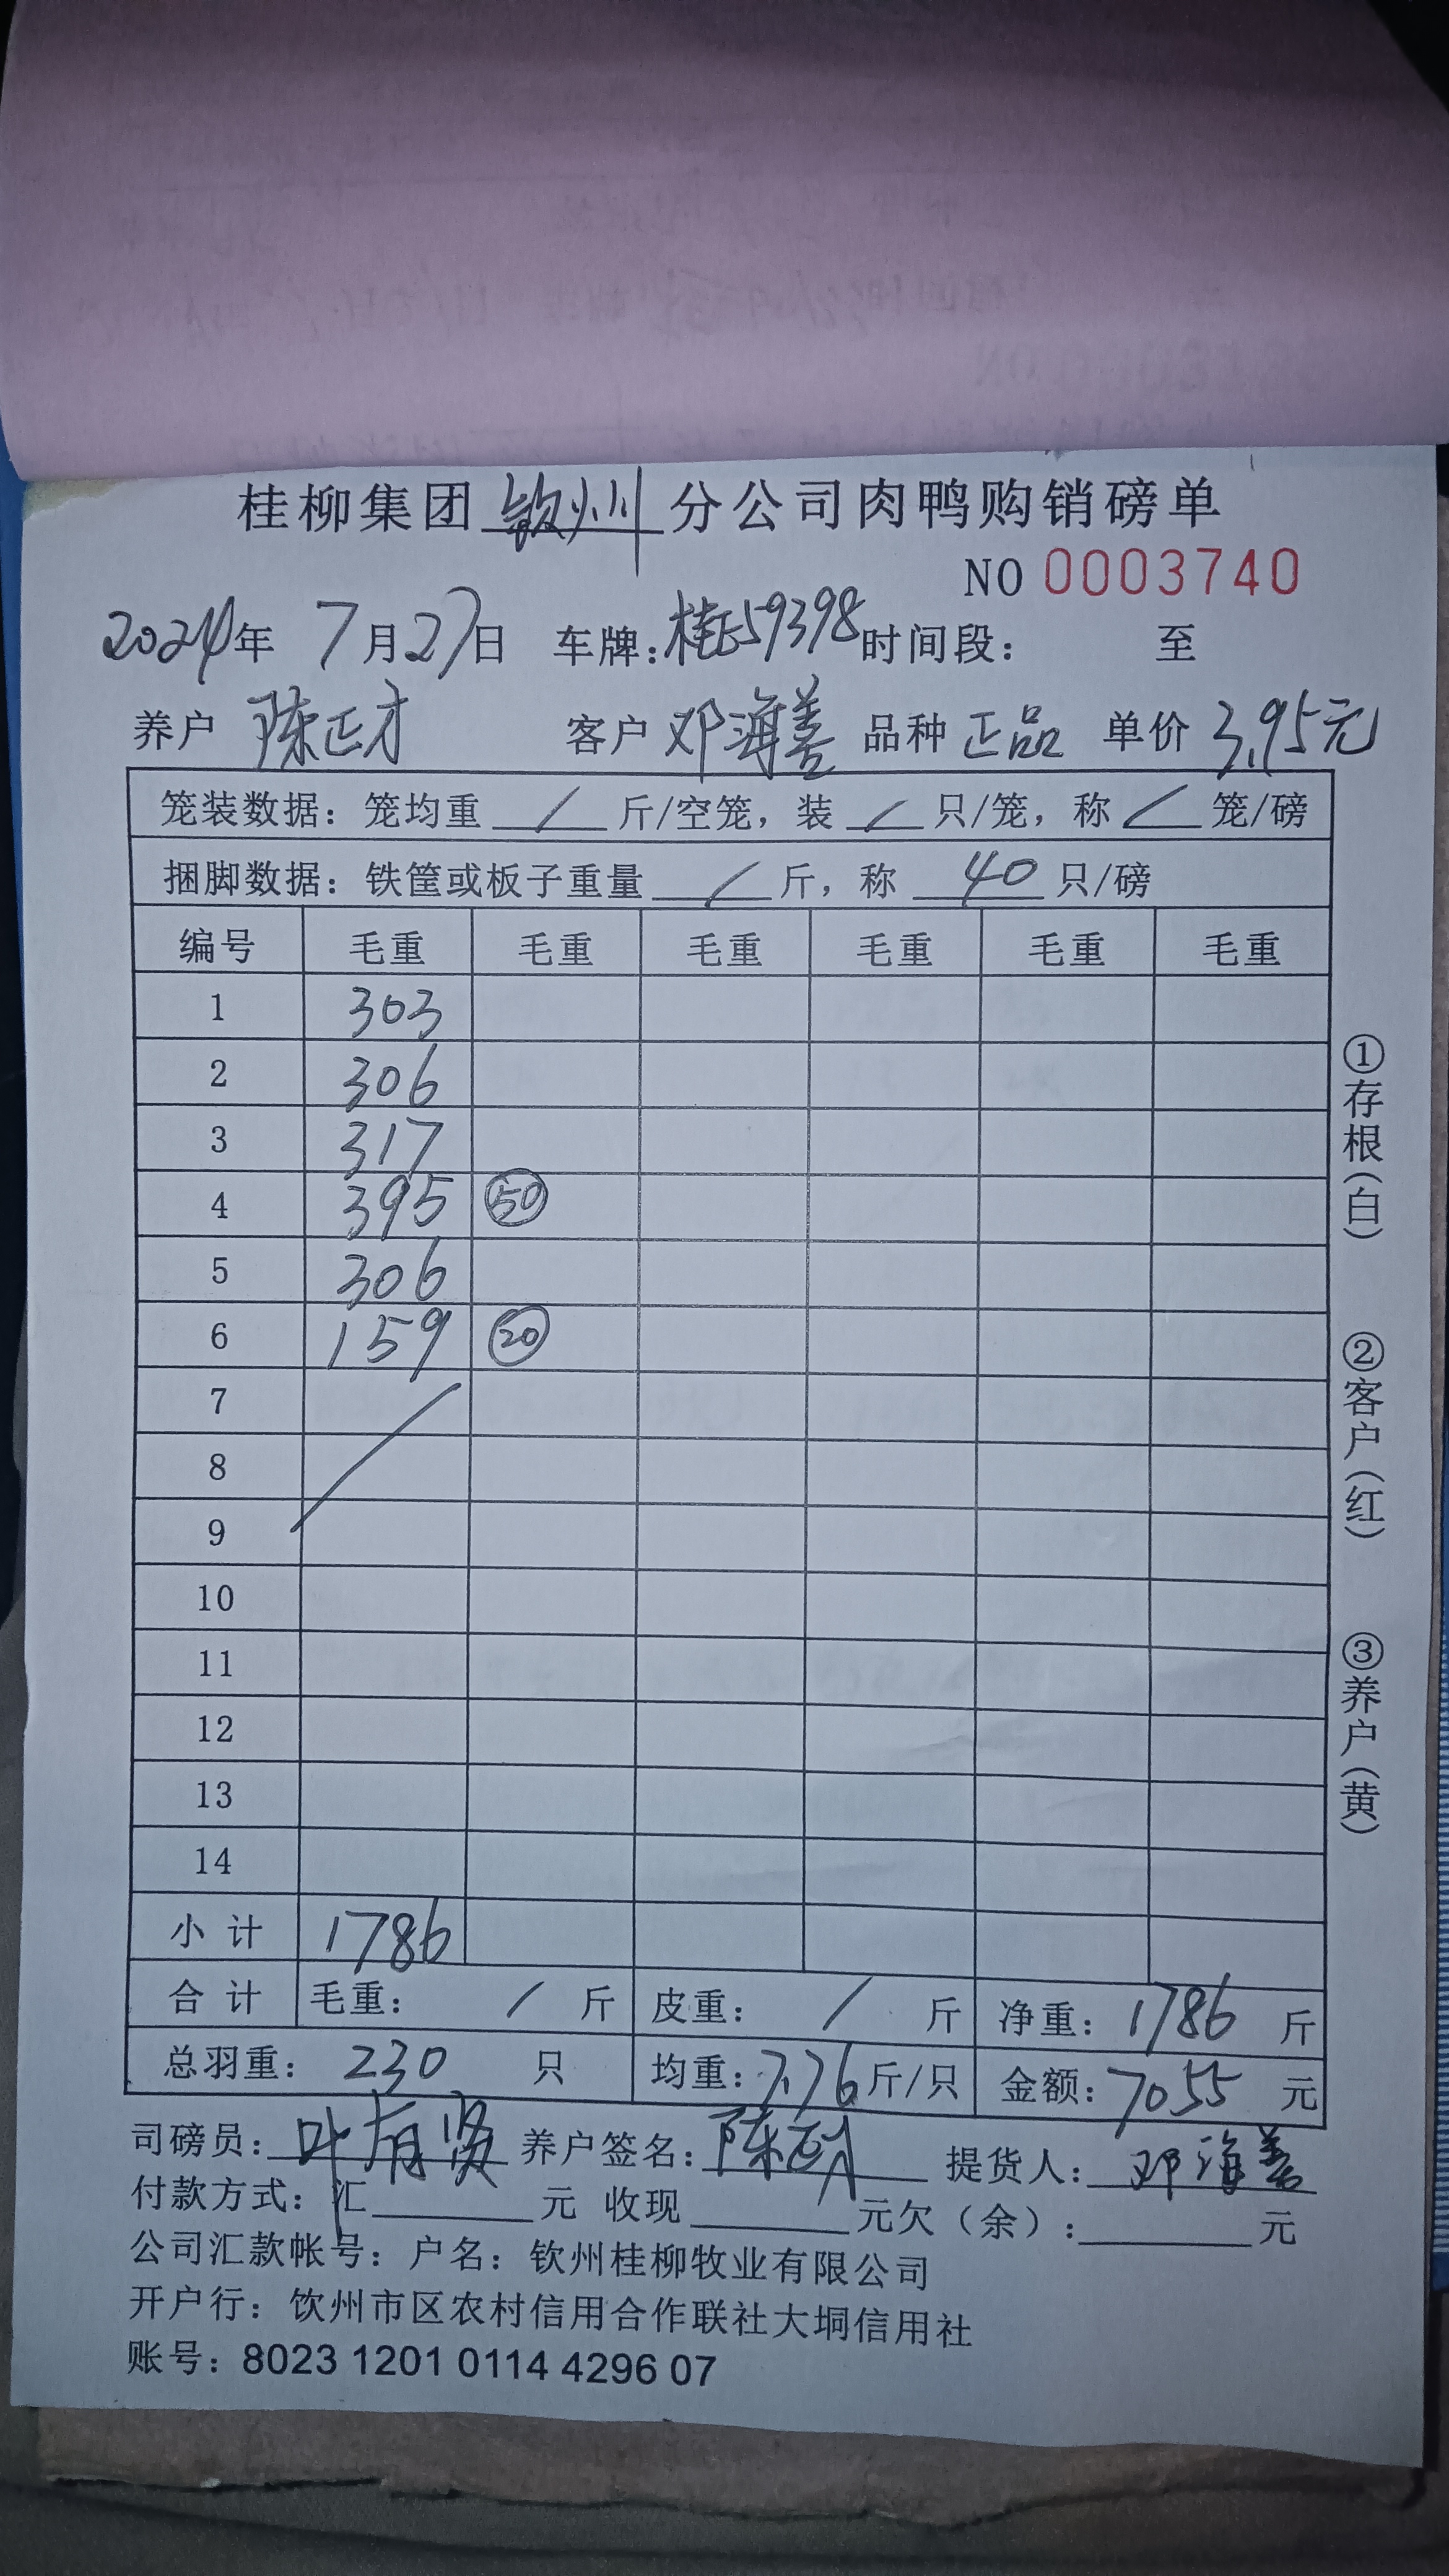 桂柳集团钦州分公司肉鸭购销磅单
NO 0003740
2024年 7月27日 车牌:桂E59398 时间段: 至
养户 陈正才 客户 邓海善 品种 正品 单价 3.95元
笼装数据: 笼均重 / 斤/空笼, 装 / 只/笼, 称 / 笼/磅
捆脚数据: 铁筐或板子重量 / 斤, 称 40 只/磅
编号 毛重 毛重 毛重 毛重 毛重 毛重
1 303
2 306
3 317
4 395 50
5 306
6 159 20
7
8
9
10
11
12
13
14
小计 1786
合计 毛重: / 斤 皮重: / 斤 净重: 1786 斤
总羽重: 230 只 均重: 7.76 斤/只 金额: 7055 元
司磅员: 叶有贤 养户签名: 陈正才 提货人: 邓海善
付款方式: 汇 元 收现 元欠(余): 元
公司汇款帐号: 户名: 钦州桂柳牧业有限公司
开户行: 钦州市区农村信用合作联社大垌信用社
账号: 8023 1201 0114 4296 07
①存根(白)
②客户(红)
③养户(黄)